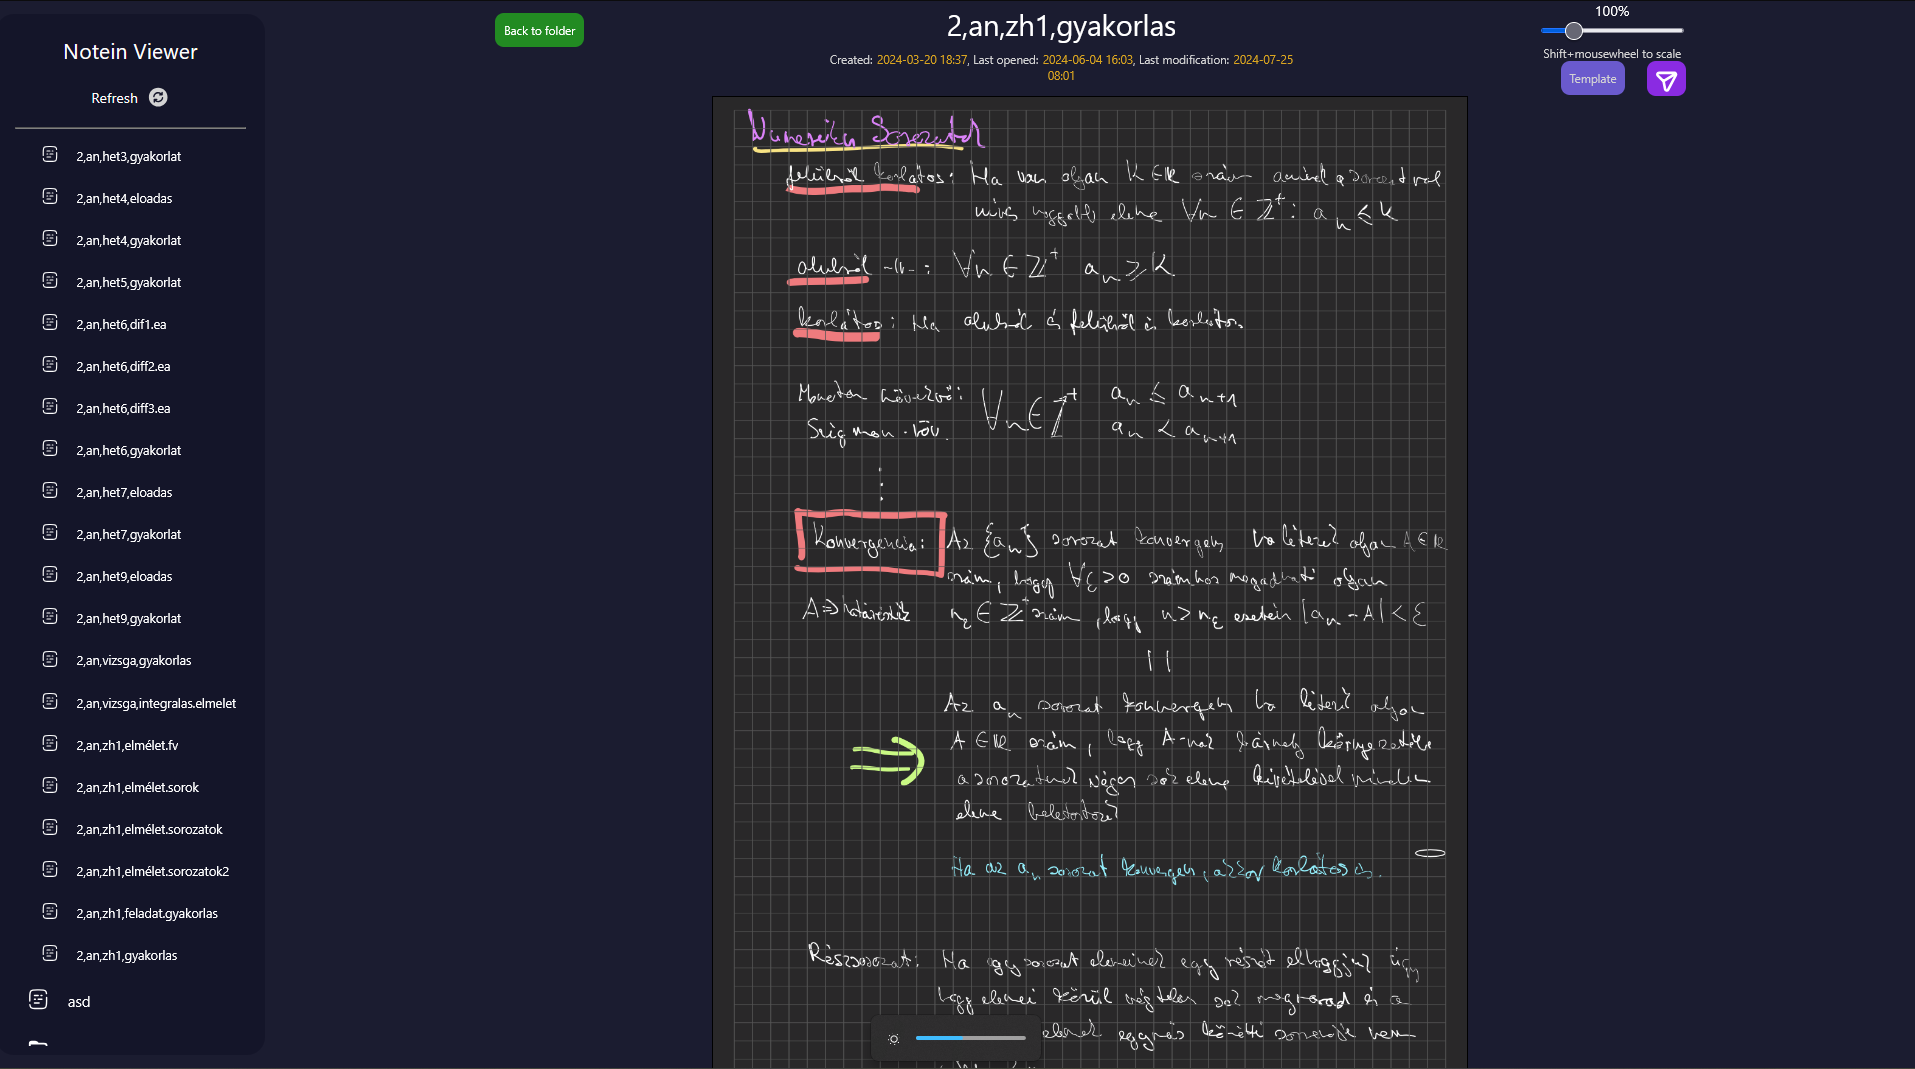 Notein Viewer
Refresh
2,an,het3,gyakorlat
2,an,het4,eloadas
2,an,het4,gyakorlat
2,an,het5,gyakorlat
2,an,het6,dif1.ea
2,an,het6,diff2.ea
2,an,het6,diff3.ea
2,an,het6,gyakorlat
2,an,het7,eloadas
2,an,het7,gyakorlat
2,an,het9,eloadas
2,an,het9,gyakorlat
2,an,vizsga,gyakorlas
2,an,vizsga,integralas.elmelet
2,an,zh1,elmélet.fv
2,an,zh1,elmélet.sorok
2,an,zh1,elmélet.sorozatok
2,an,zh1,elmélet.sorozatok2
2,an,zh1,feladat.gyakorlas
2,an,zh1,gyakorlas
asd
Back to folder
2,an,zh1,gyakorlas
Created: 2024-03-20 18:37, Last opened: 2024-06-04 16:03, Last modification: 2024-07-25
08:01
100%
Shift+mousewheel to scale
Template
Numerikus Sorozatok
felülről korlátos: Ha van olyan K∈ℝ szám aminél a sorozatnak
nincs nagyobb eleme ∀n ∈ ℤ⁺: aₙ ≤ K
alulról -||-: ∀n ∈ ℤ⁺ aₙ ≥ K
korlátos: Ha alulról és felülről is korlátos.
Monoton növekvő: ∀n∈ℤ⁺ aₙ ≤ aₙ₊₁
Szig mon. növ. aₙ < aₙ₊₁
Konvergencia: Az {aₙ} sorozat konvergens ha létezik olyan A∈ℝ
szám, hogy ∀ε>0 számhoz megadható olyan
A => határérték
n_ε ∈ ℤ⁺ szám, hogy n > n_ε esetén |aₙ - A| < ε
||
Az aₙ sorozat konvergens ha létezik olyan
A ∈ℝ szám, hogy A-nak bármely környezetébe
a sorozatnak véges sok eleme kivételével minden
eleme beletartozik
Ha az aₙ sorozat konvergens, akkor korlátos is.
Részsorozat: Ha egy sorozat elemeinek egy részét elhagyjuk úgy
hogy elemei közül végtelen sok megmarad és a
elemek egymás közötti sorrendje nem